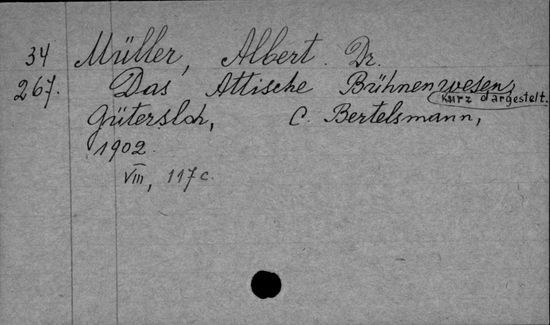 34 Müller, Albert. Dr.
267. Das Attische Bühnenwesen,
kurz dargestelt.
Gütersloh, C. Bertelsmann,
1902.
VIII, 117 c.